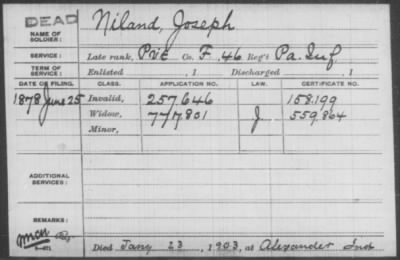 DEAD
NAME OF SOLDIER: Niland, Joseph
SERVICE: Late rank, Pvt Co. F, 46 Reg't Pa. Inf.
TERM OF SERVICE: Enlisted , 1 Discharged , 1
DATE OF FILING. CLASS. APPLICATION NO. LAW. CERTIFICATE NO.
1878 June 25 Invalid, 257.646 158.199
Widow, 777.801 J 559.864
Minor,
ADDITIONAL SERVICES:
REMARKS:
Died Jany 23, 1903, at Alexander Ind